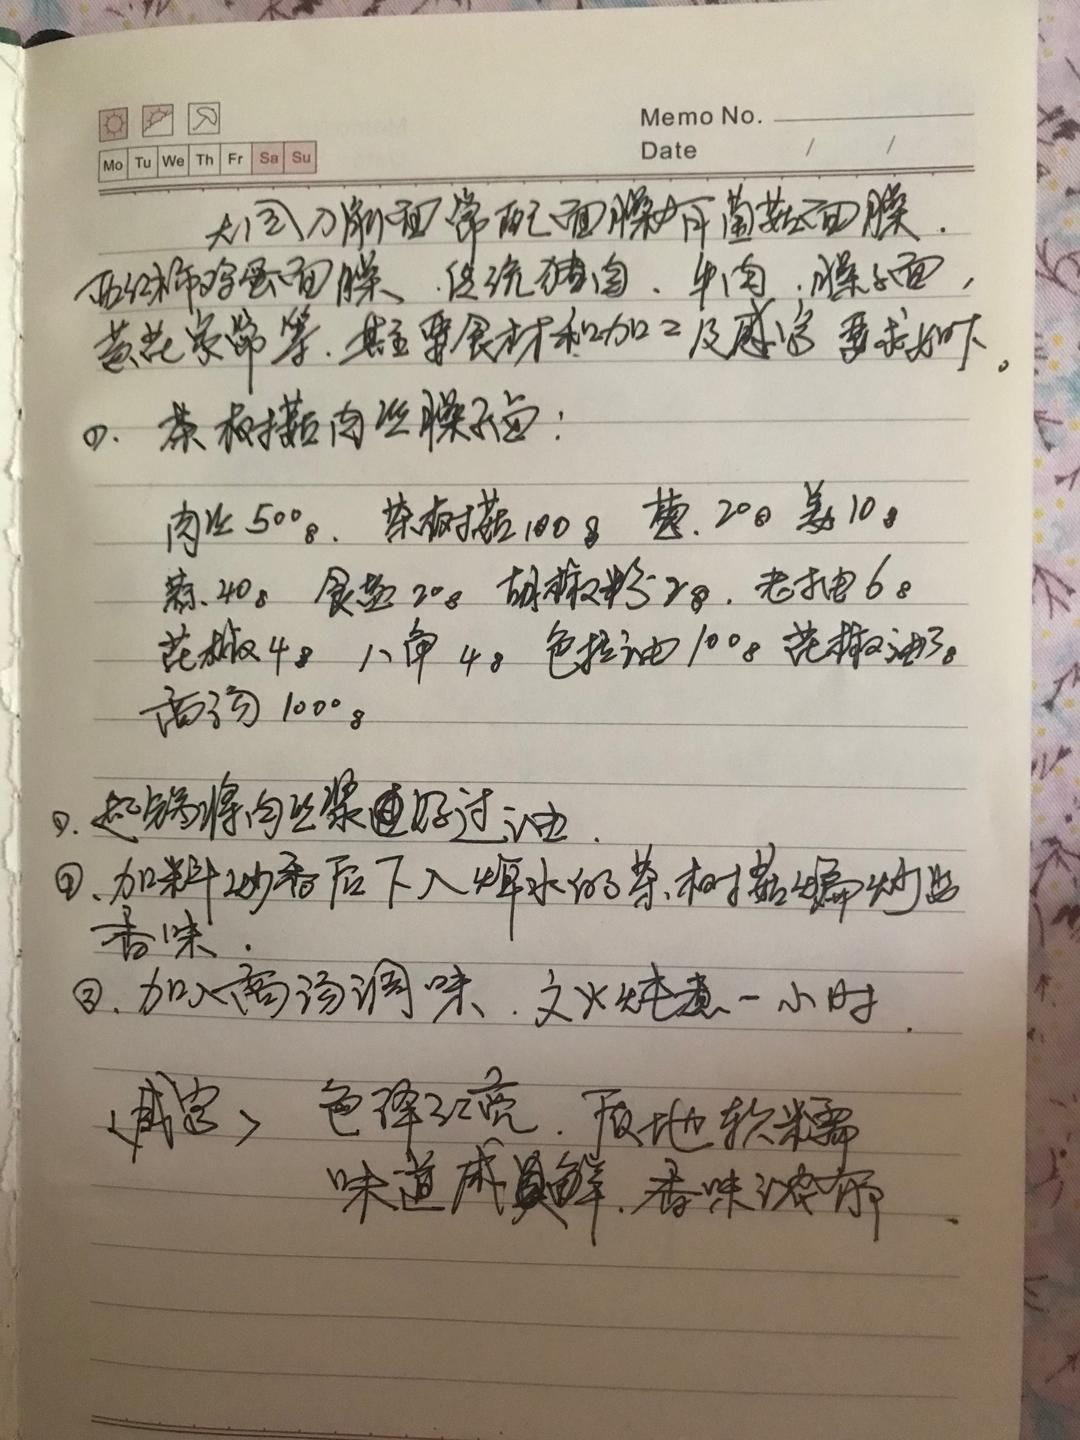 Memo No.
Date / /
Mo Tu We Th Fr Sa Su
大同刀削面常配面臊有菌菇面臊.
西红柿鸡蛋面臊、传统猪肉、牛肉、臊子面,
黄花家常等.其主要食材和加工及感官要求如下。
①. 茶树菇肉丝臊子卤:
肉丝500g、茶树菇100g 葱.20g 姜10g
蒜.40g 食盐20g 胡椒粉2g. 老抽6g
花椒4g 八角4g 色拉油100g 花椒油3g
高汤1000g
①. 起锅将肉丝浆好过油.
②. 加料炒香后下入焯水的茶树菇煸炒出
香味.
③. 加入高汤调味、文火炖煮一小时.
<感官> 色泽红亮. 质地软糯
味道咸鲜. 香味浓郁.